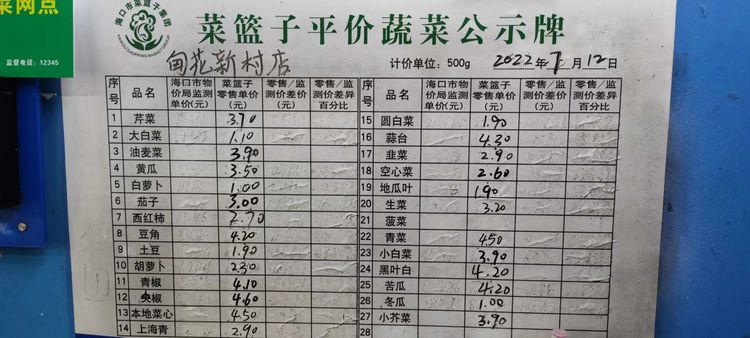 菜网点
监督电话：12345
海口市菜篮子集团
HAIKOU SHOPPING BASKET GROUP
菜篮子平价蔬菜公示牌
甸花新村店
计价单位：500g 2022年7月12日
序号 品名 海口市物价局监测单价(元) 菜篮子零售单价(元) 零售/监测价差价(元) 零售/监测价差异百分比
1 芹菜 3.70
2 大白菜 1.10
3 油麦菜 3.90
4 黄瓜 3.50
5 白萝卜 1.00
6 茄子 3.00
7 西红柿 2.70
8 豆角 4.20
9 土豆 1.90
10 胡萝卜 2.30
11 青椒 4.10
12 尖椒 4.60
13 本地菜心 4.50
14 上海青 2.90
序号 品名 海口市物价局监测单价(元) 菜篮子零售单价(元) 零售/监测价差价(元) 零售/监测价差异百分比
15 圆白菜 1.90
16 蒜台 4.30
17 韭菜 2.90
18 空心菜 2.60
19 地瓜叶 1.90
20 生菜 3.20
21 菠菜
22 青菜 4.50
23 小白菜 3.90
24 黑叶白 4.20
25 苦瓜 4.20
26 冬瓜 1.00
27 小芥菜 3.90
28